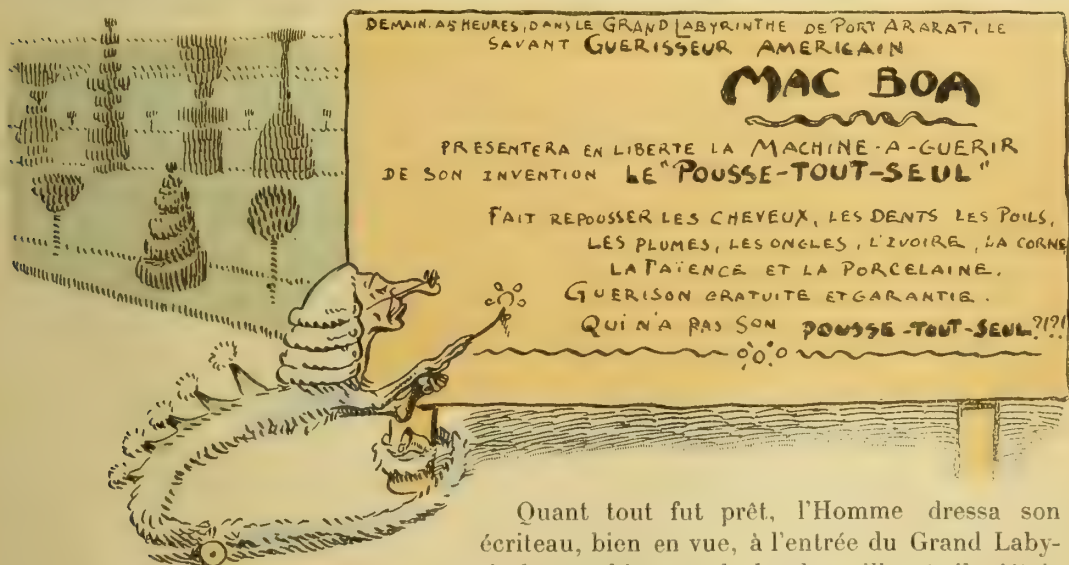 DEMAIN. A 5 HEURES, DANS LE GRAND LABYRINTHE DE PORT ARARAT, LE
SAVANT GUERISSEUR AMERICAIN
MAC BOA
PRESENTERA EN LIBERTE LA MACHINE-A-GUERIR
DE SON INVENTION LE "POUSSE-TOUT-SEUL"
FAIT REPOUSSER LES CHEVEUX, LES DENTS LES POILS,
LES PLUMES, LES ONGLES, L'IVOIRE, LA CORNE
LA FAÏENCE ET LA PORCELAINE.
GUERISON GRATUITE ET GARANTIE.
QUI N'A PAS SON POUSSE-TOUT-SEUL?!?!
Quant tout fut prêt, l'Homme dressa son
écriteau, bien en vue, à l'entrée du Grand Laby-